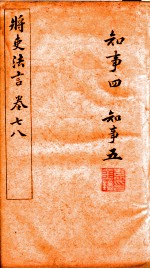 將吏法言 卷七八
知事四 知事五